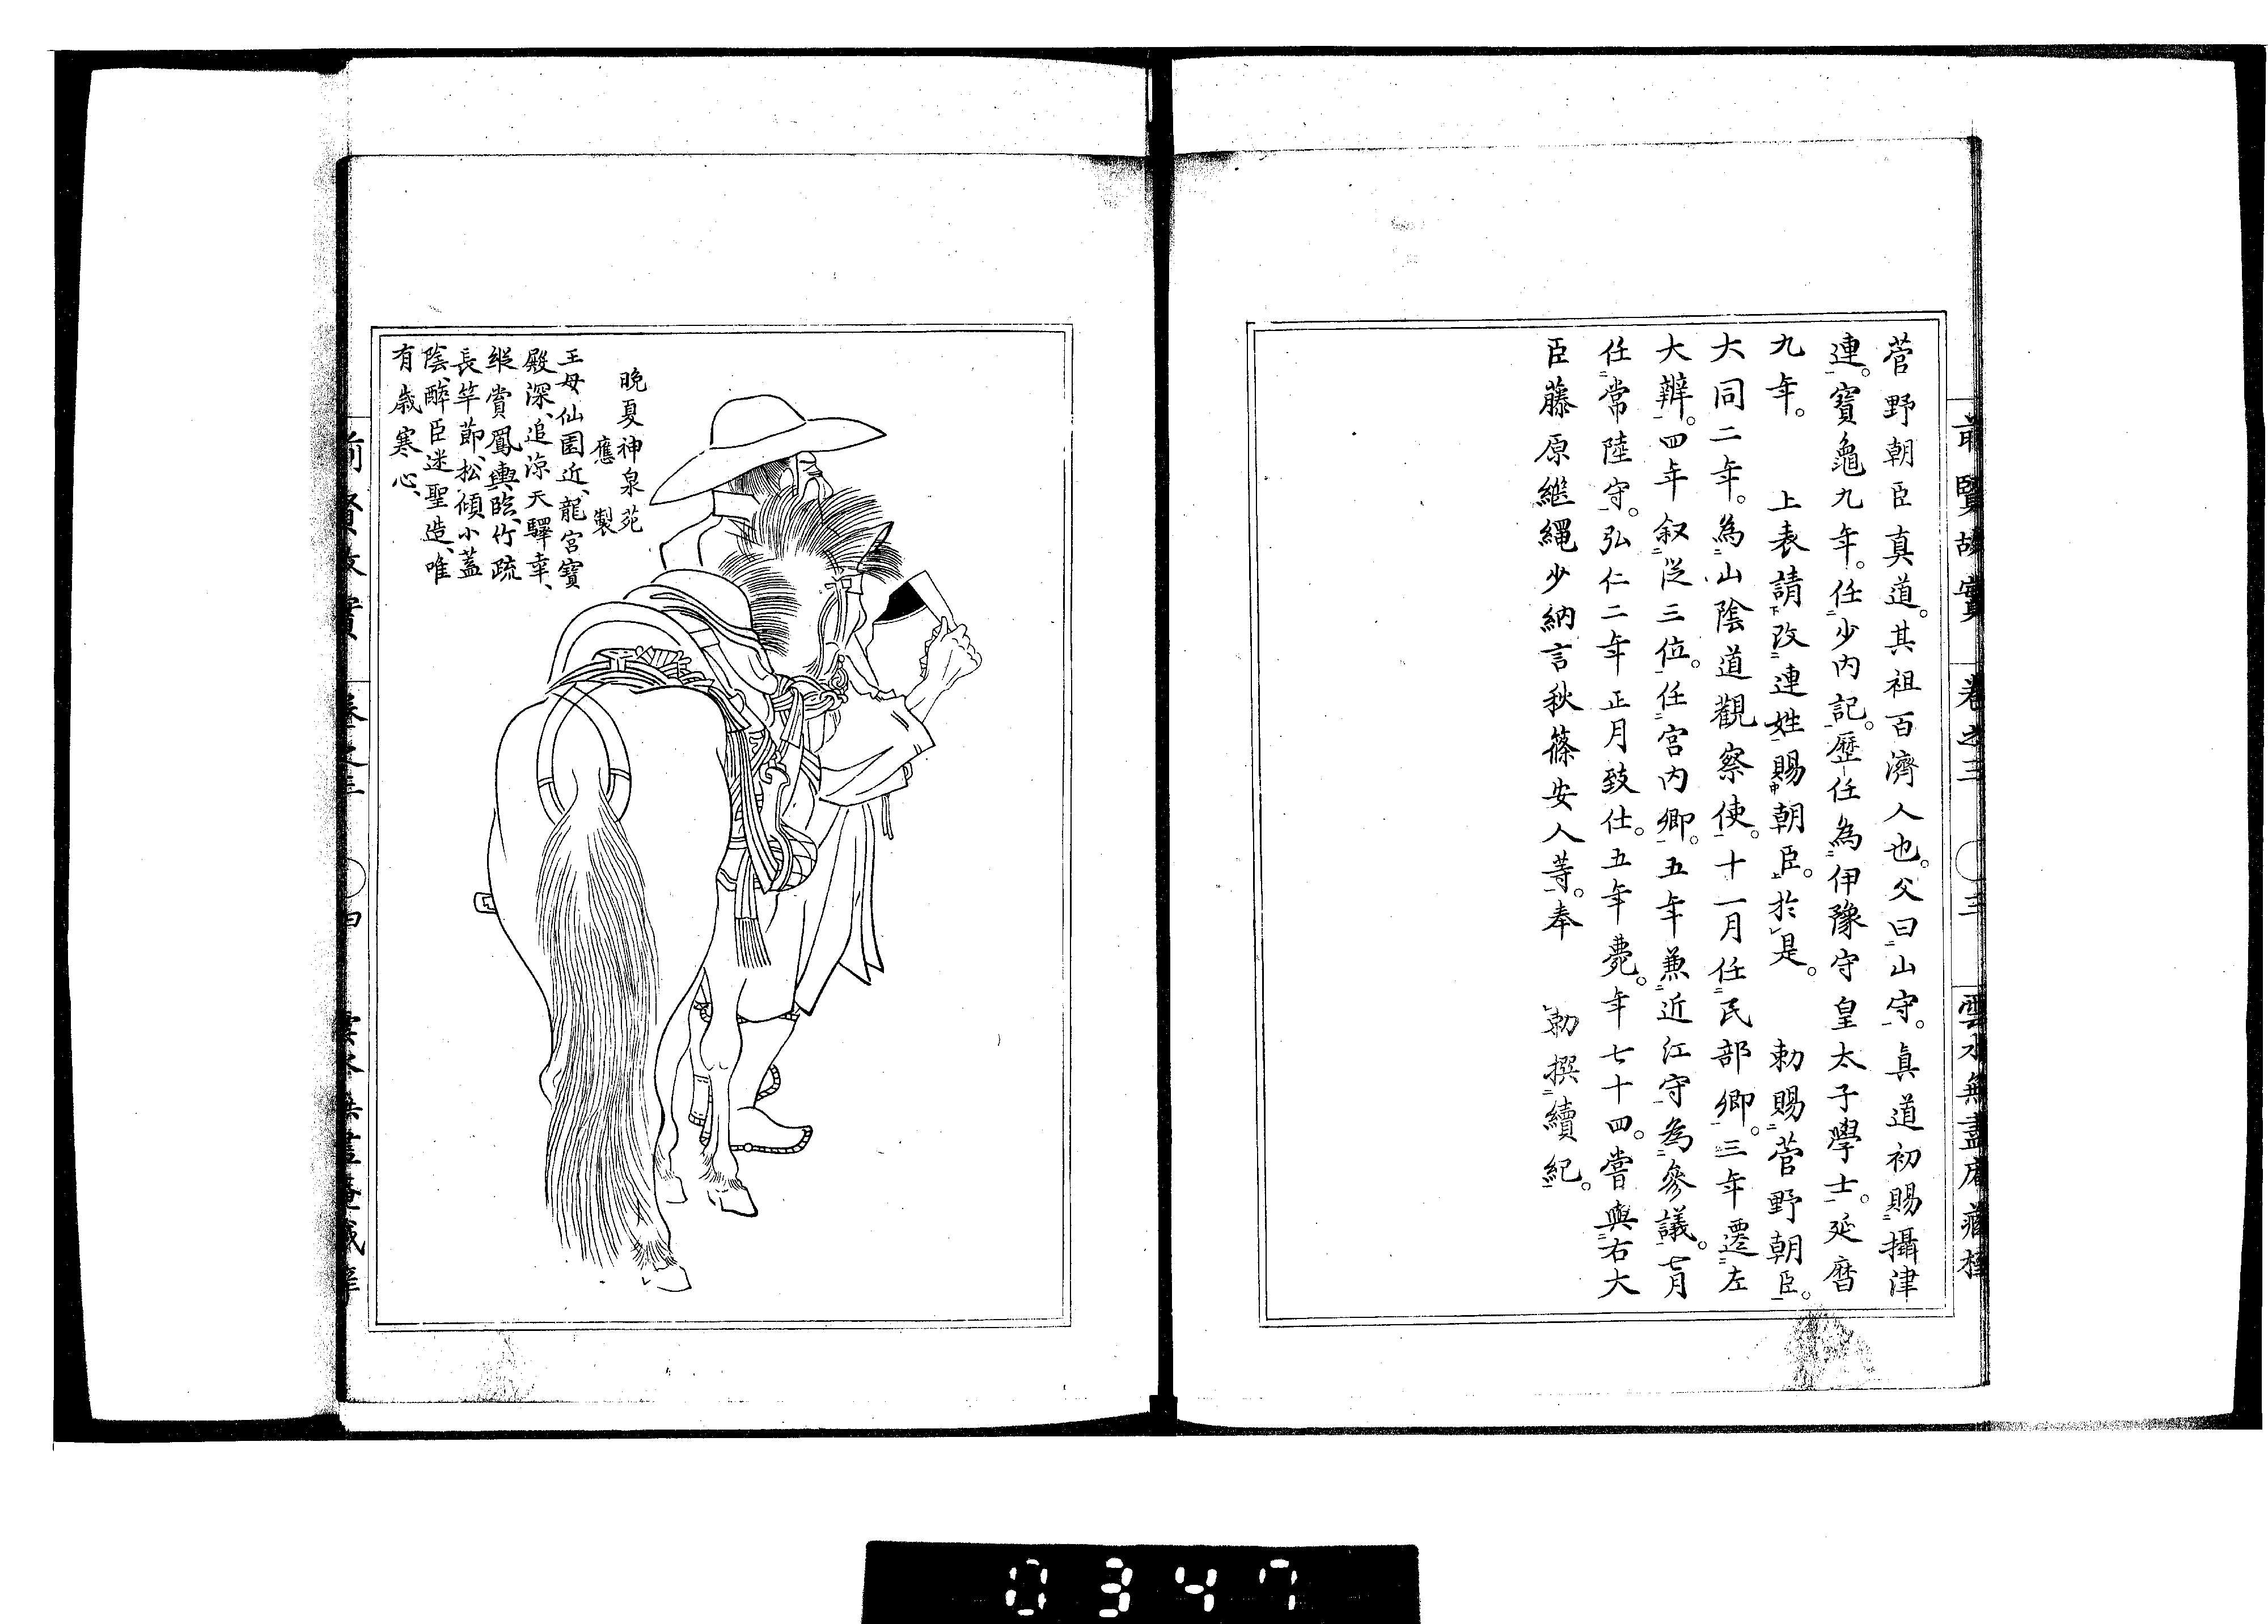 前賢故實　卷之三　三　雲水無盡庵藏梓
菅野朝臣真道。其祖百濟人也。父曰山守。真道初賜攝津
連。寶龜九年。任少內記。歷任為伊豫守皇太子學士。延曆
九年。　上表請改連姓賜朝臣。於是。　勅賜菅野朝臣。
大同二年。為山陰道觀察使。十一月任民部卿。三年遷左
大辨。四年叙從三位。任宮內卿。五年兼近江守為參議。七月
任常陸守。弘仁二年正月致仕。五年薨。年七十四。嘗與右大
臣藤原繼繩少納言秋篠安人等。奉　勅撰續紀。
晚夏神泉苑
應　製
王母仙園近、龍宮寶
殿深、追涼天驛幸、
縱賞鳳輿臨、竹疏
長竿節、松傾小蓋
陰、醉臣迷聖造、唯
有歲寒心、
前賢故實
0347